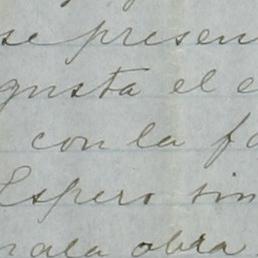 se presen
gusta el e
con la fa
Espero sin
mala obra